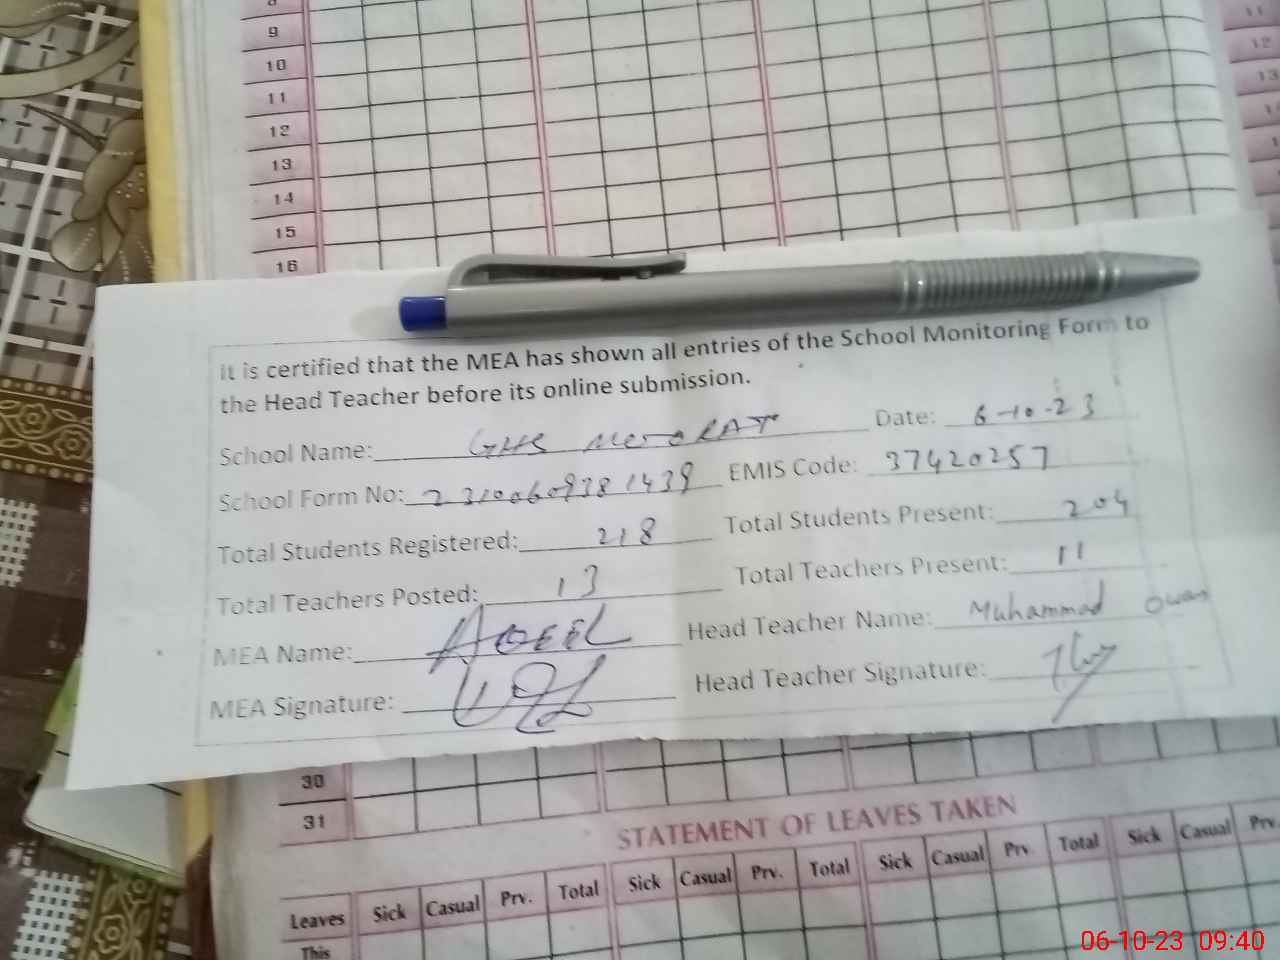 9
10
11
12
13
14
15
16
11
12
13
It is certified that the MEA has shown all entries of the School Monitoring Form to
the Head Teacher before its online submission.
School Name: GHS Date: 6-10-23
School Form No: 23100609381439 EMIS Code: 37420257
Total Students Registered: 218 Total Students Present: 204
Total Teachers Posted: 13 Total Teachers Present: 11
MEA Name: AQEEL Head Teacher Name: Muhammad
MEA Signature: Head Teacher Signature:
30
31
STATEMENT OF LEAVES TAKEN
Leaves Sick Casual Prv. Total Sick Casual Prv. Total Sick Casual Prv. Total Sick Casual Prv.
This
06-10-23 09:40